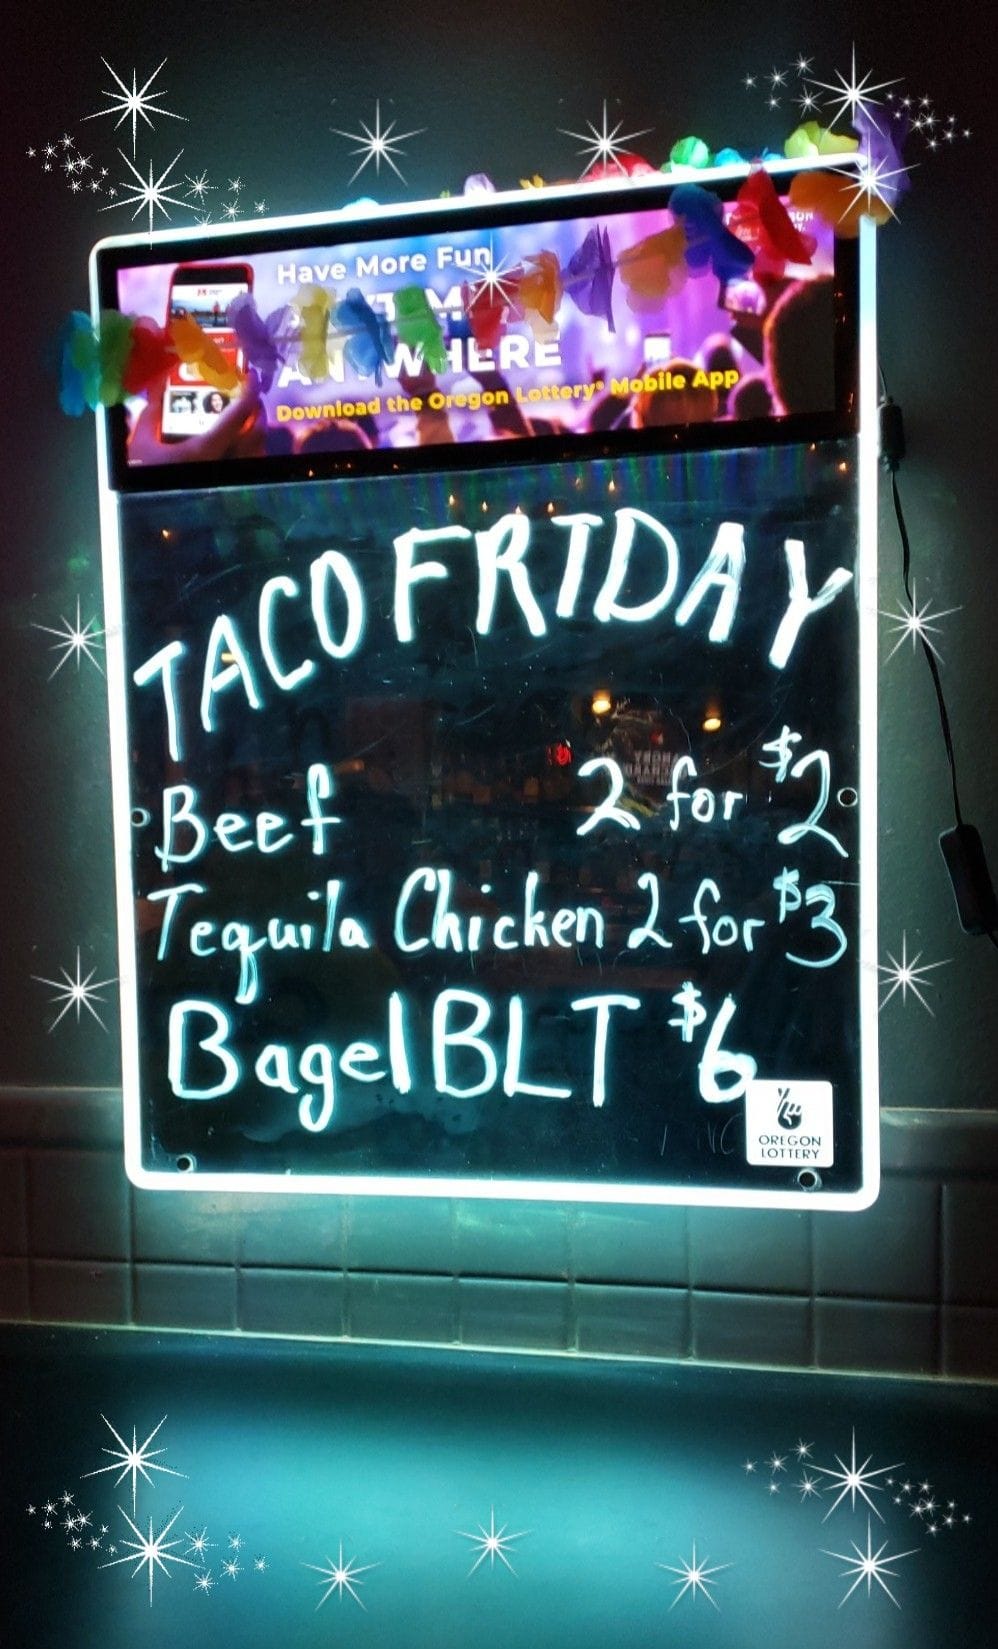 Have More Fun
ANYWHERE
Download the Oregon Lottery® Mobile App
TACO FRIDAY
Beef 2 for $2
Tequila Chicken 2 for $3
Bagel BLT $6
OREGON
LOTTERY